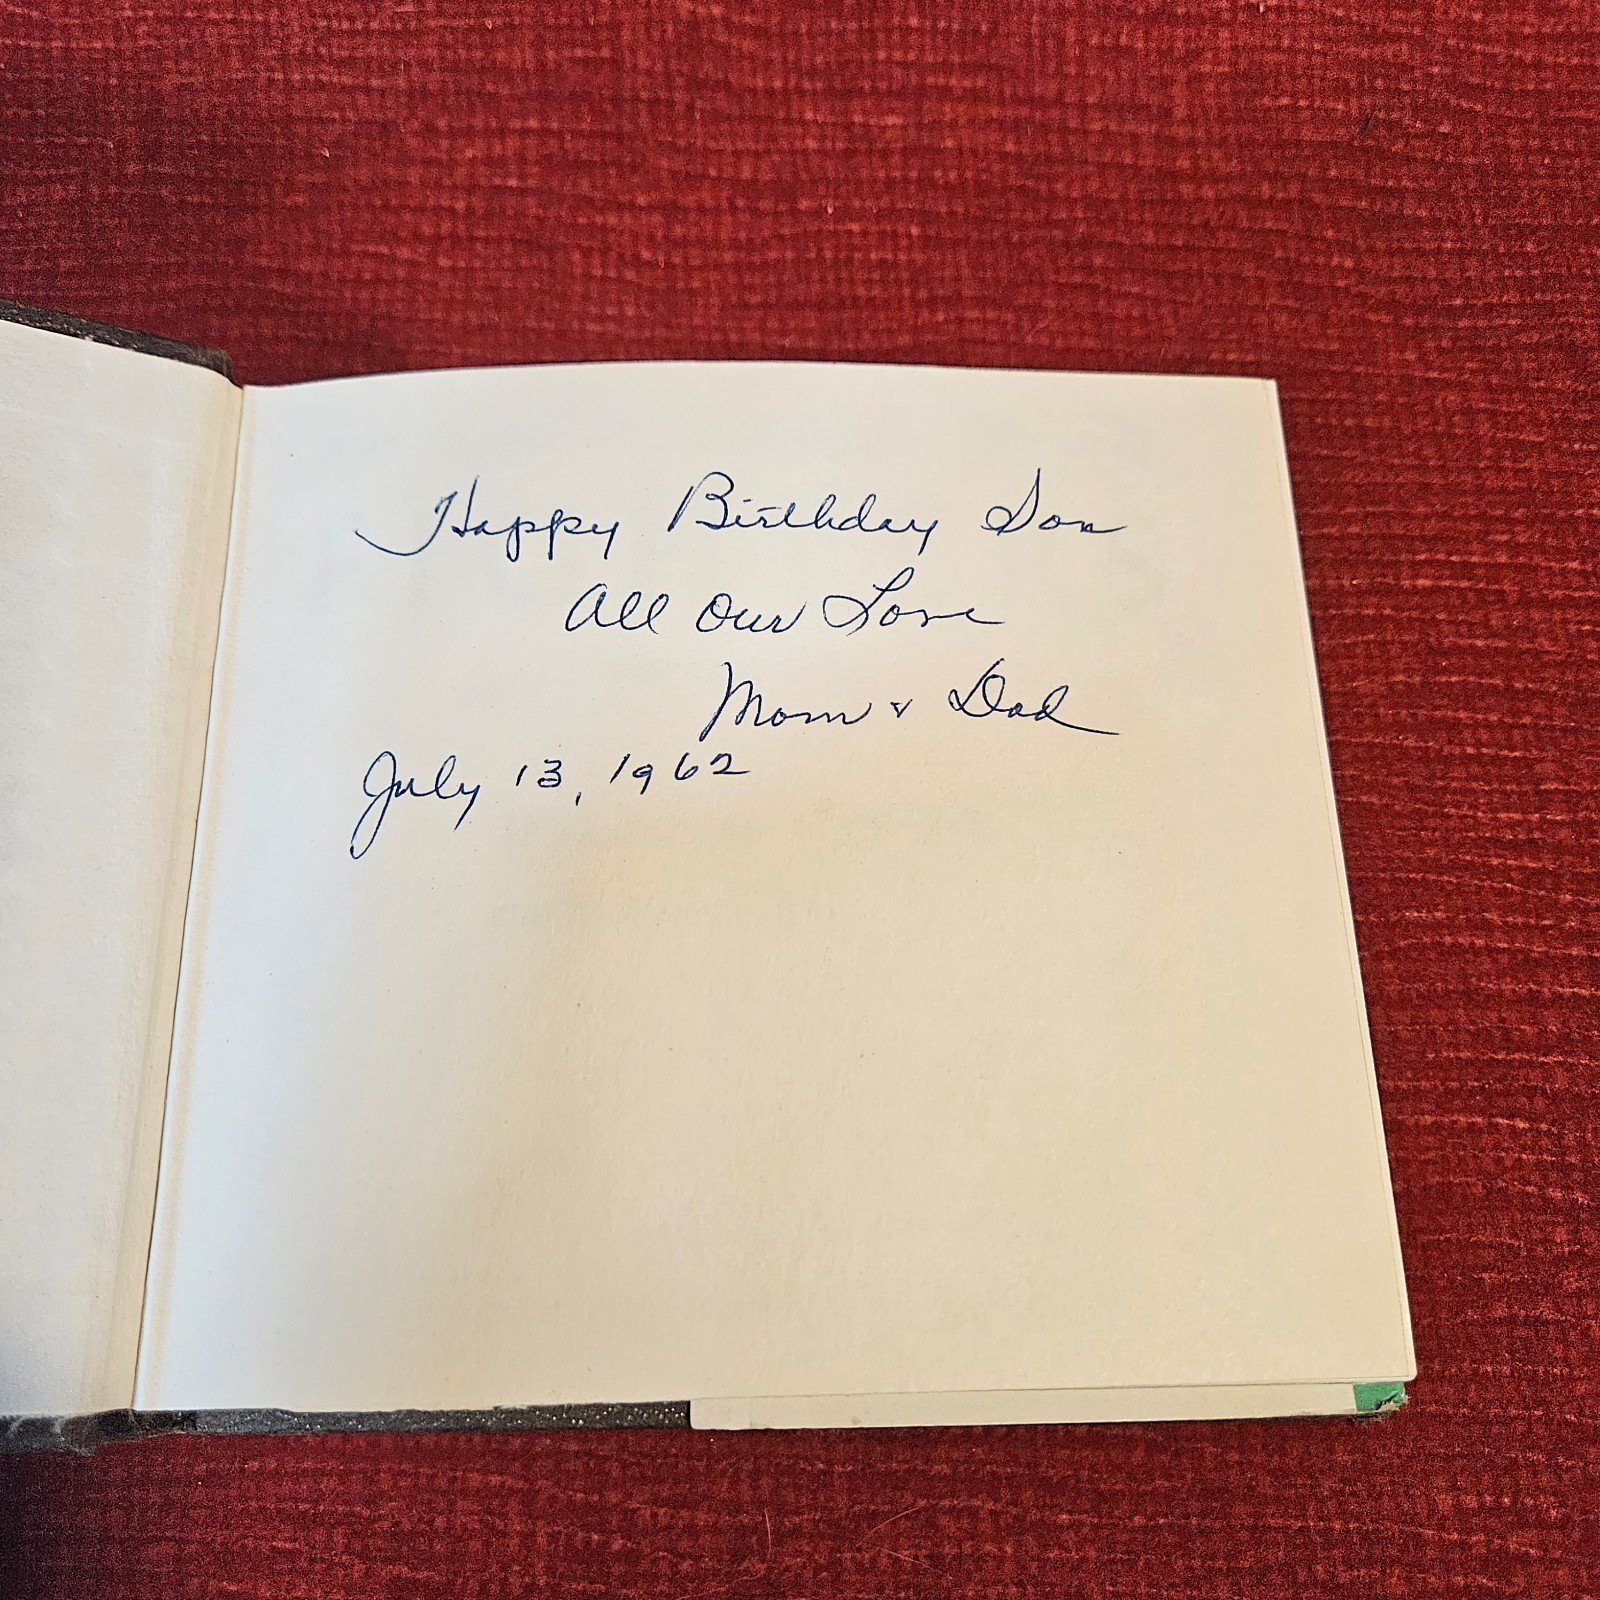 Happy Birthday Son
All Our Love
Mom & Dad
July 13, 1962